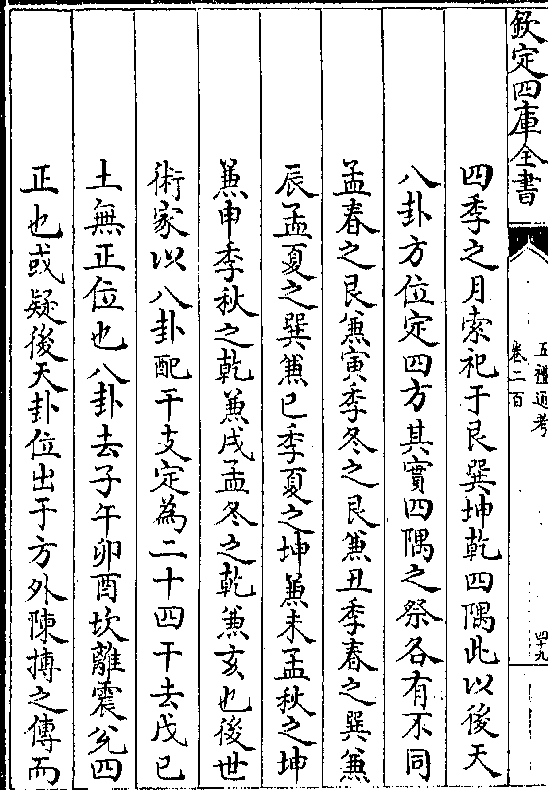 欽定四庫全書
五禮通考
卷二百
四十九
四季之月索祀于艮巽坤乾四隅此以後天
八卦方位定四方其實四隅之祭各有不同
孟春之艮兼寅季冬之艮兼丑季春之巽兼
辰孟夏之巽兼巳季夏之坤兼未孟秋之坤
兼申季秋之乾兼戌孟冬之乾兼亥也後世
術家以八卦配干支定為二十四干去戊己
土無正位也八卦去子午卯酉坎離震兊四
正也或疑後天卦位出于方外陳摶之傳而